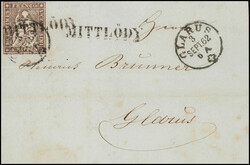 MITTLÖDY
MITTLÖDY
GLARUS
3
SEPT 62
6 A
Heinrich Brunner
Glarus